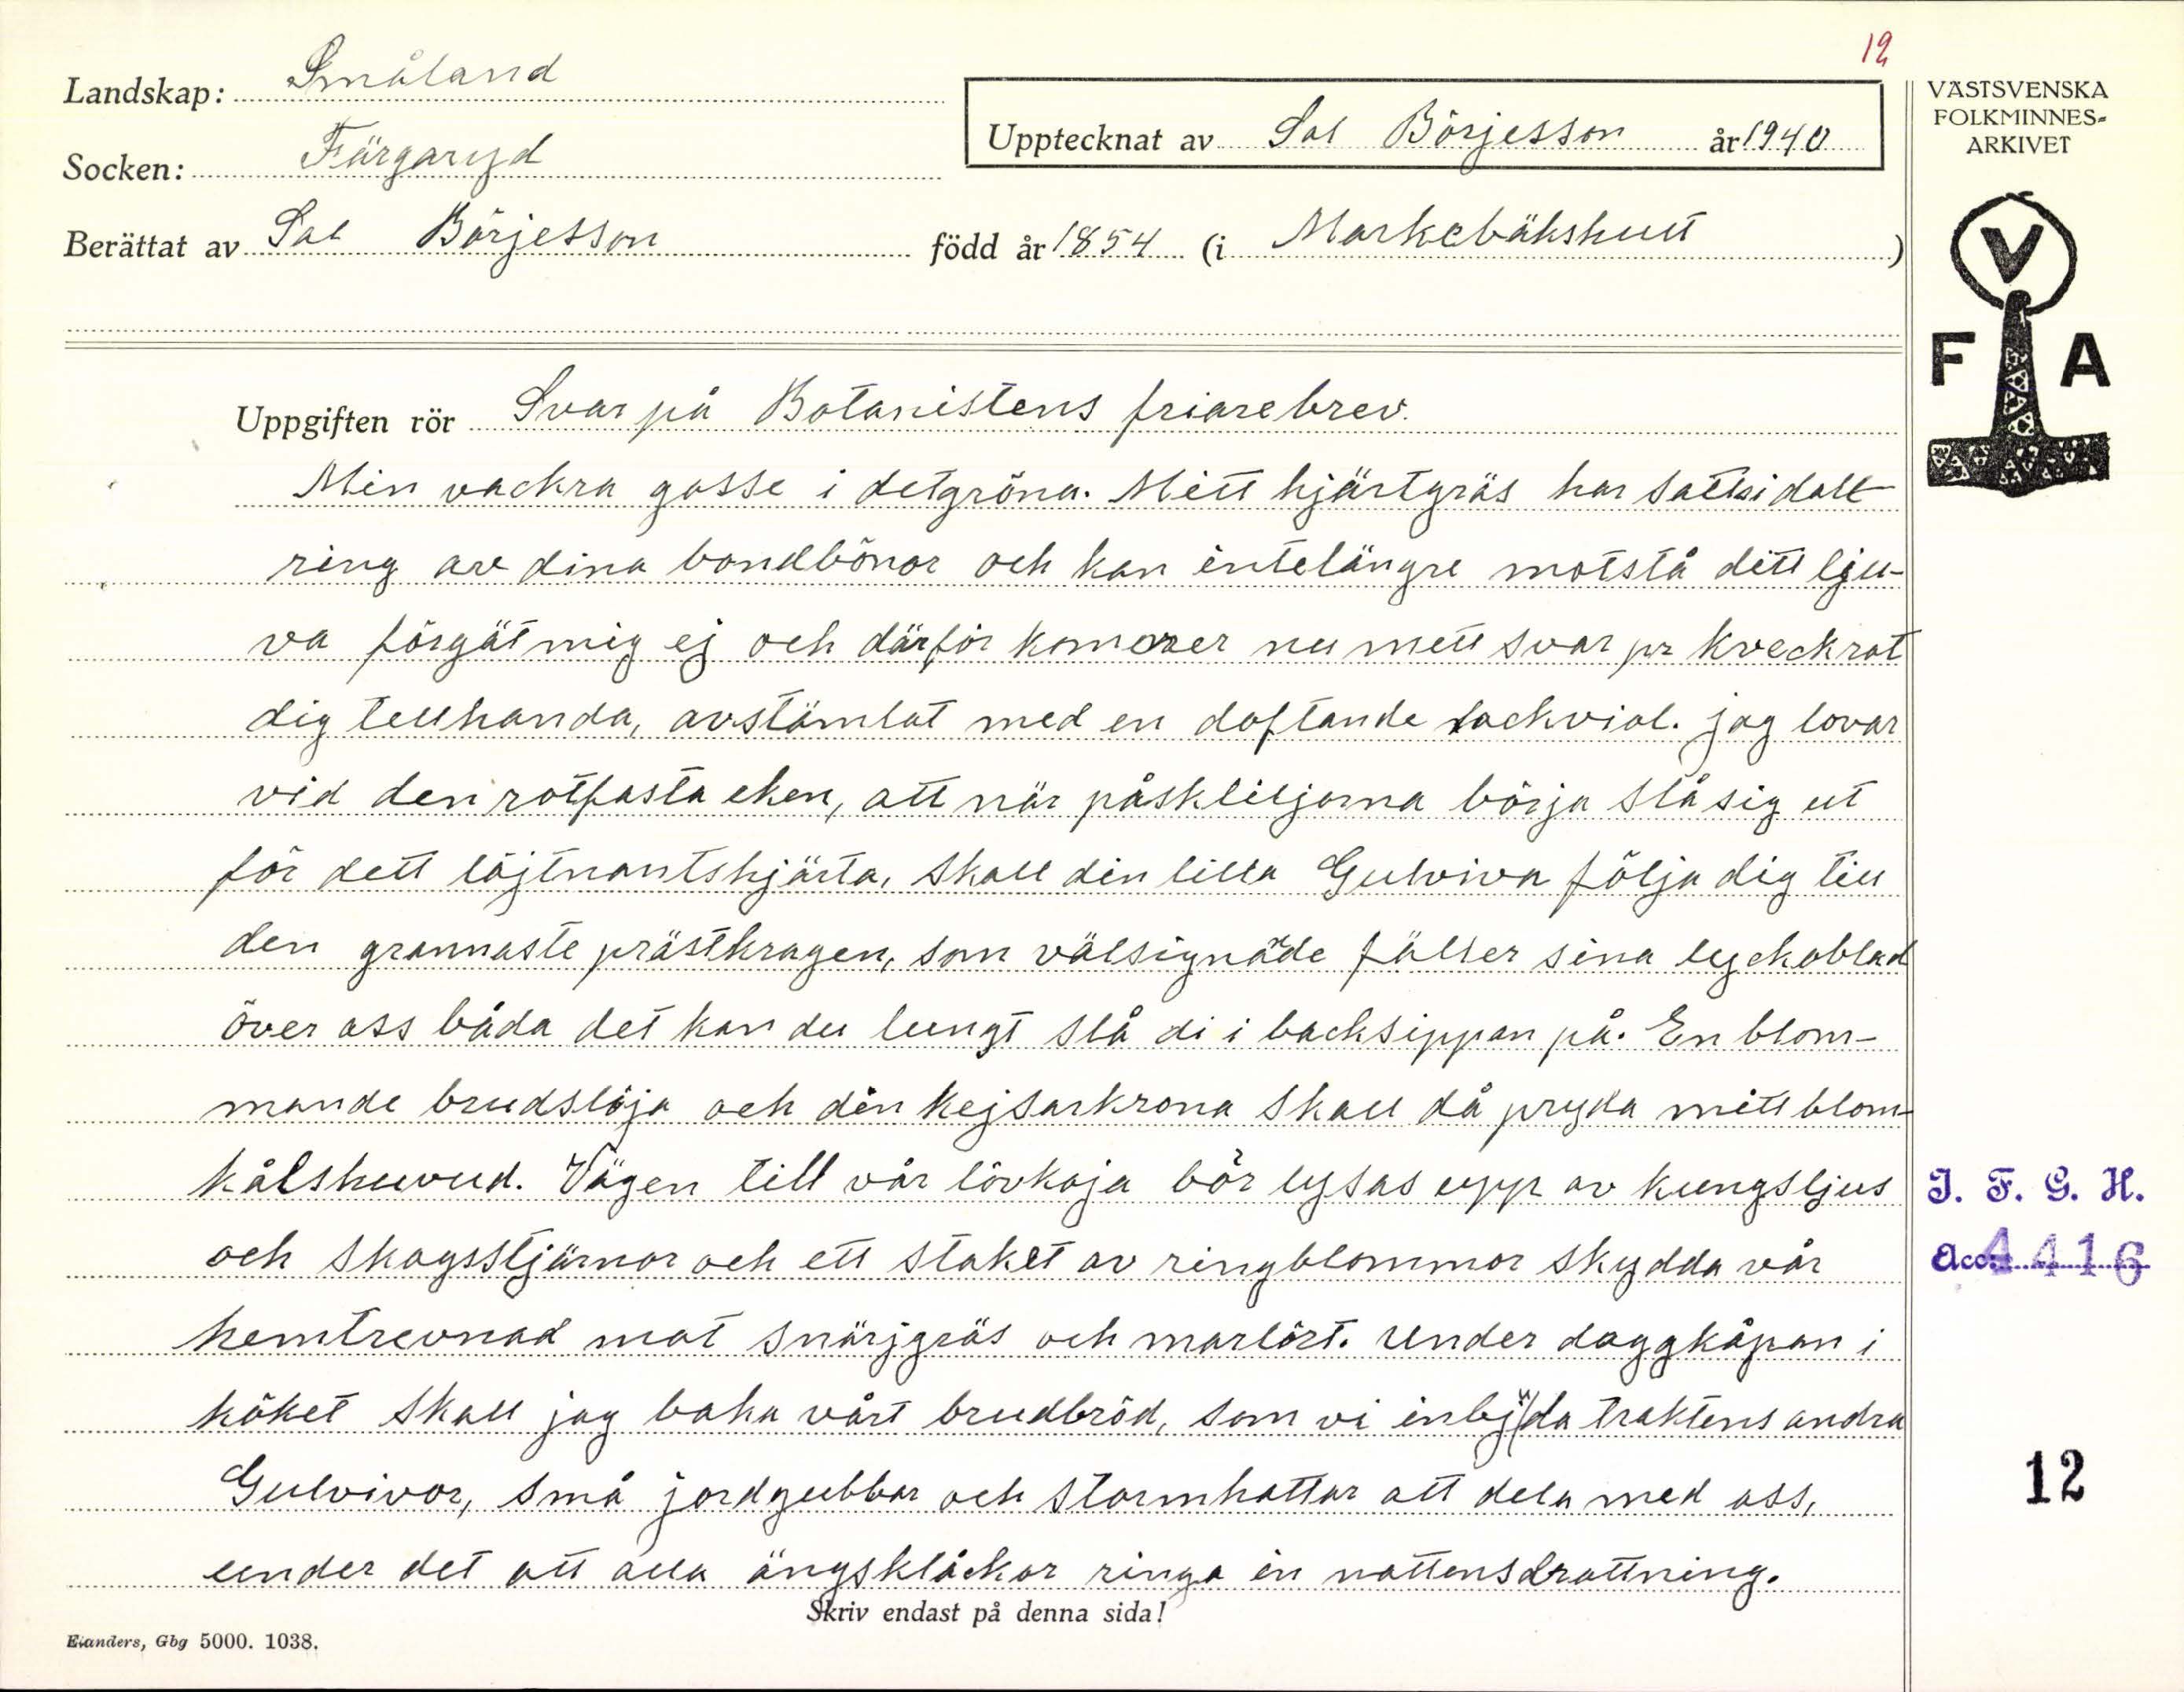 12
Landskap: Småland
VÄSTSVENSKA
FOLKMINNES-
ARKIVET
Upptecknat av Sal Börjesson år 1940
Socken: Färgaryd
Berättat av Sal Börjesson född år 1854 (i Markebäkshult)
V
F A
Uppgiften rör Svar på Botanistens friarebrev.
Min vackra gosse i detgröna. Mitt hjärtgräs har satts i dall
ring av dina bondbönor och kan intelängre motstå ditt lju-
va förgät mig ej och därför kommer nu mitt svar pr kveckrot
dig tillhanda, avstämlat med en doftande lackviol. jag lovar
vid den rotfasta eken, att när påskliljorna börja slå sig ut
för ditt löjtnantshjärta, skall din lilla Gulviva följa dig till
den grannaste prästkragen, som välsignade fäller sina lyckoblad
över oss båda det kan du lungt slå di i backsippan på. En blom-
mande brudslöja och din kejsarkrona skall då pryda mitt blom-
kålshuvud. Vägen till vår lövkoja bör lysas upp av kungsljus
och skogsstjärnor och ett staket av ringblommor skydda vår
hemtrevnad mot snärjgräs och marlört. Under daggkåpan i
köket skall jag baka vårt brudbröd, som vi inbjuda traktens andra
Gulvivor, små jordgubbar och stormhattar att dela med oss,
under det att alla ängsklåckor ringa in nattensdrottning.
Skriv endast på denna sida!
Elanders, Gbg 5000. 1038.
I. F. G. H.
Acc: 4416
12